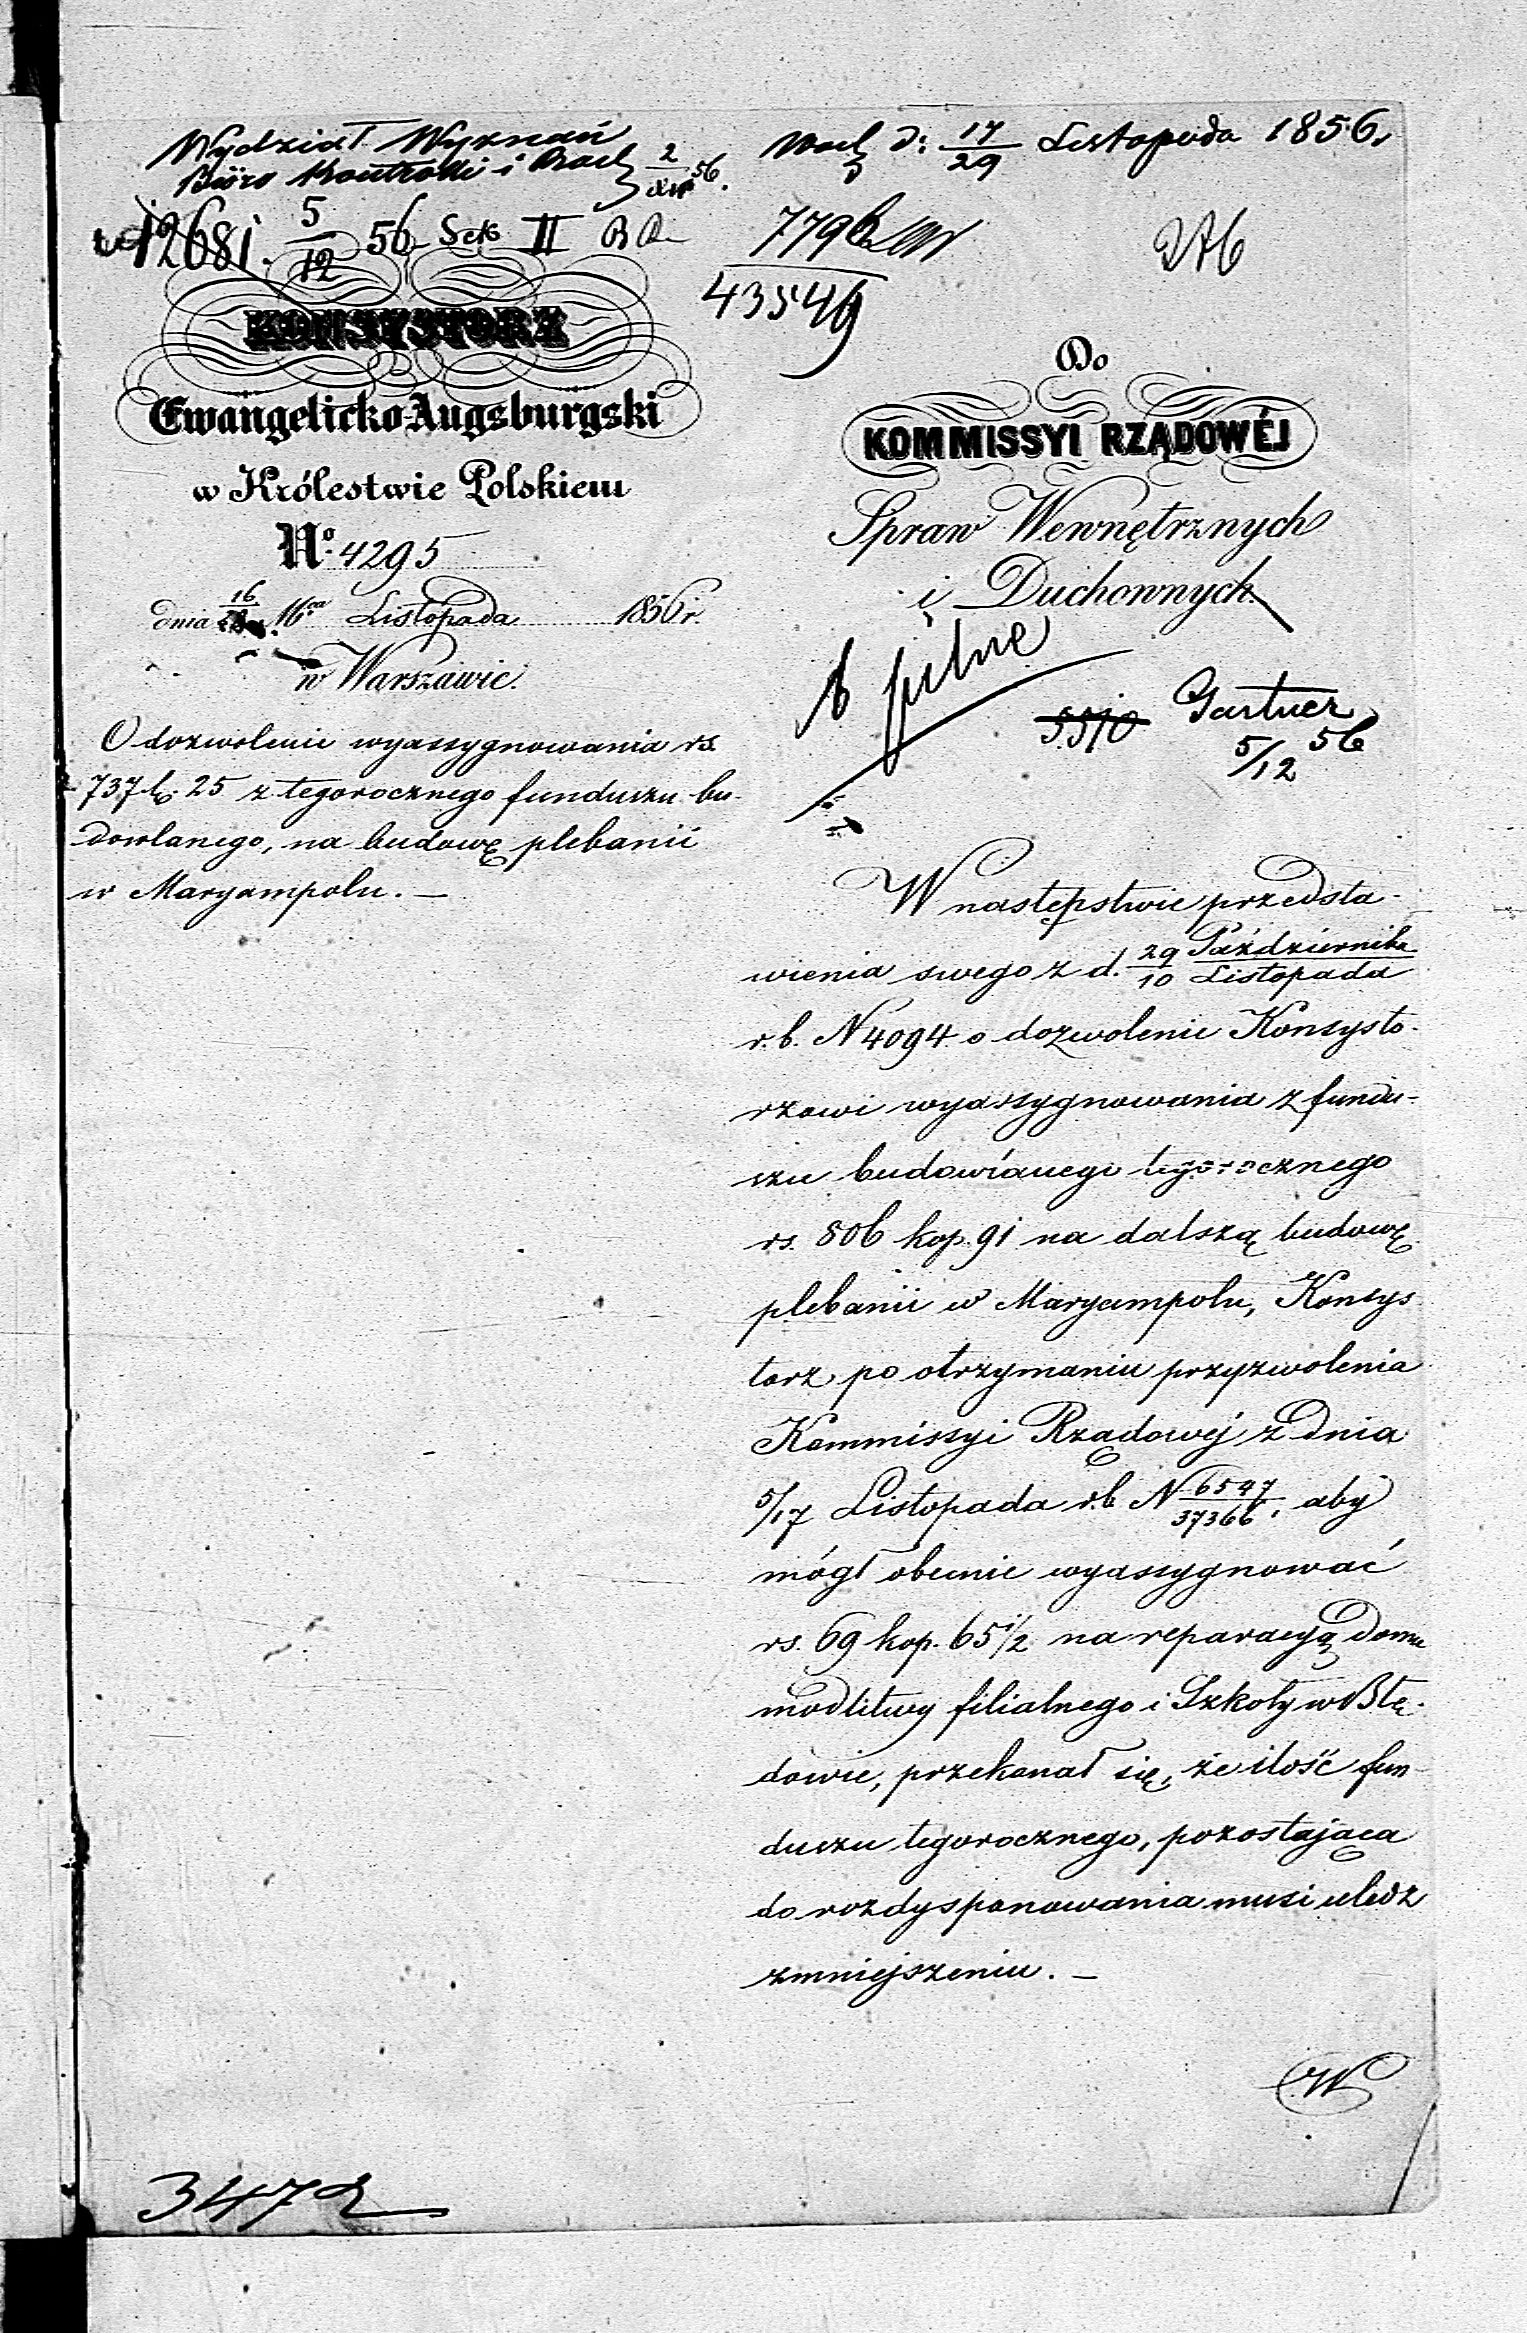 Wydział Wyznań
Biuro Kontrolli i Rach 2/XII 56.
12681. 5/12 56 Sek II
KONSYSTORZ
Ewangelicko-Augsburgski
w Królestwie Polskiem
No. 4295
dnia 16 Listopada 1856 r.
w Warszawie.
O dozwolenie wyassygnowania rs.
737 k. 25 z tegorocznego funduszu bu-
dowlanego, na budowę plebanii
w Maryampolu. —
d: 17/29 Listopada 1856.
7796
43549
Do
KOMMISSYI RZĄDOWÉJ
Spraw Wewnętrznych
i Duchownych
pilne
Gartner
5/12 56
W następstwie przedsta-
wienia swego z d. 29 Października/10 Listopada
r.b. N 4094 o dozwolenie Konsysto-
rzowi wyassygnowania z fundu-
szu budowlanego tegorocznego
rs. 806 kop. 91 na dalszą budowę
plebanii w Maryampolu, Konsys
torz po otrzymaniu przyzwolenia
Kommissyi Rządowéj z dnia
5/17 Listopada r.b. N 6547/37366, aby
mógł obecnie wyassygnować
rs. 69 kop. 65 1/2 na reparacyą Domu
modlitwy filialnego i Szkoły w Błę-
dowie, przekonał się, że ilość fun-
duszu tegorocznego, pozostająca
do rozdysponowania musi uledz
zmniejszeniu. —
347